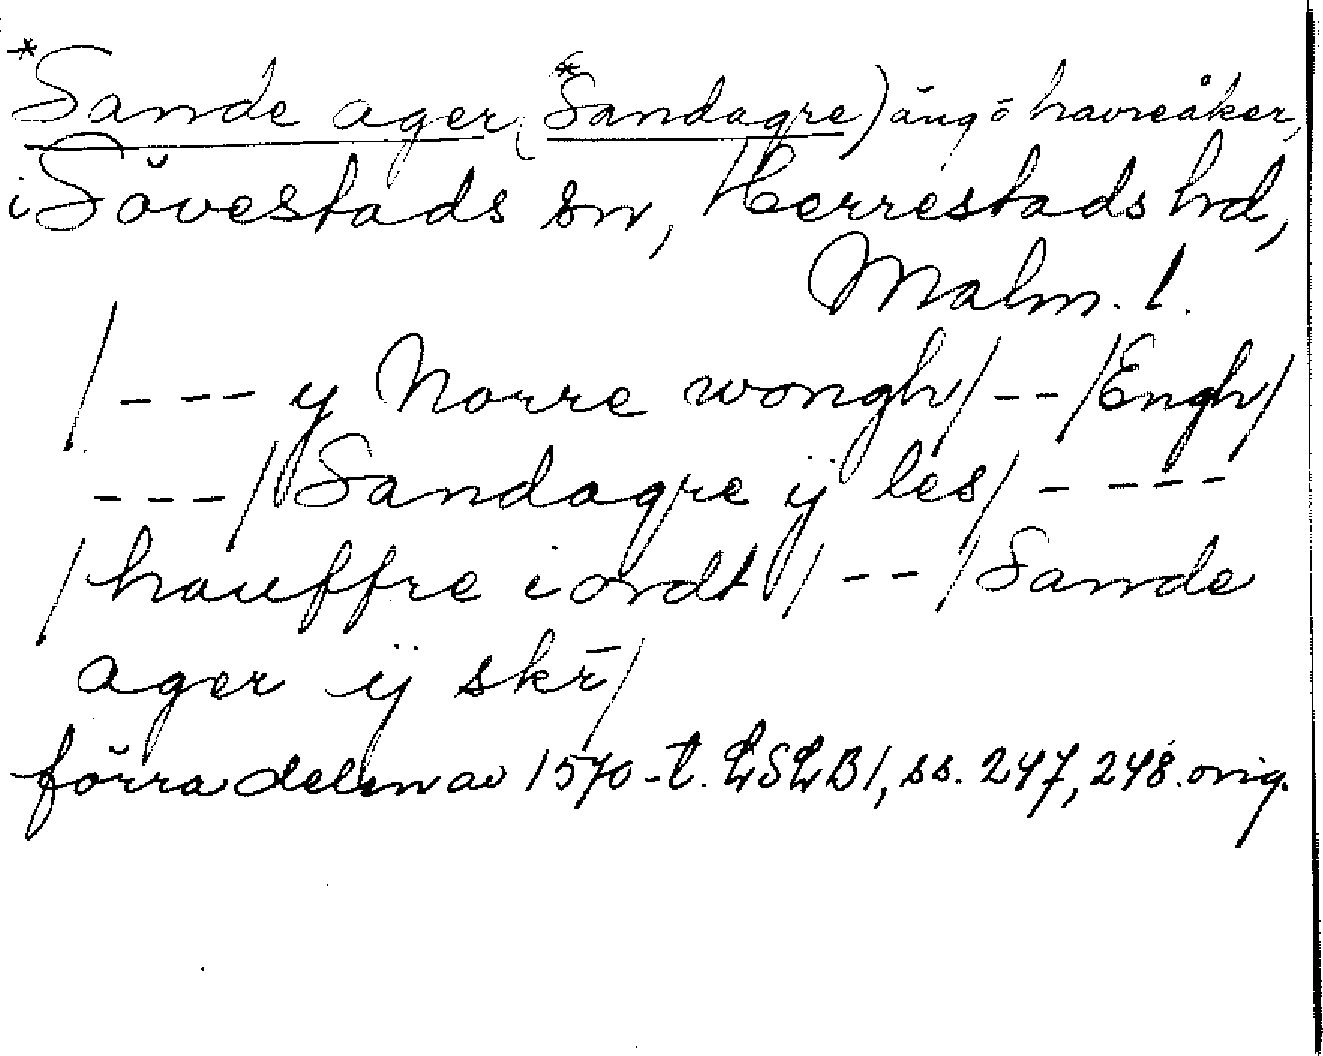 *Sande ager (*Sandagre) äng o havreåker,
i Sövestads sn, Herrestads hd,
Malm. l.
/--- y Norre wongh/--/Engh/
---/Sandagre ÿ les/----
/hauffre iordt/--/Sande
ager ÿ skr̄/
förra delen av 1570-t. LSLB1, ss. 247, 248. orig.